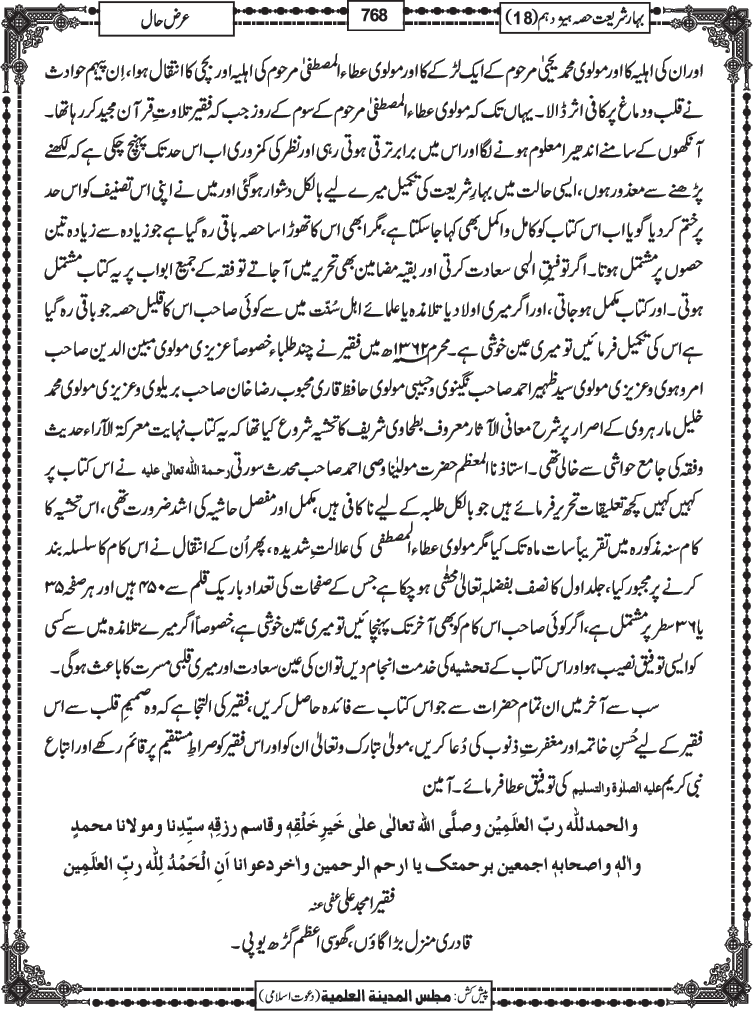 بہار شریعت حصہ ہیژدہم (18)
768
عرض حال
اور ان کی اہلیہ کا اور مولوی محمد یحییٰ مرحوم کے ایک لڑکے کا اور مولوی عطاء المصطفیٰ مرحوم کی اہلیہ اور بچی کا انتقال ہوا، اِن پیہم حوادث
نے قلب و دماغ پر کافی اثر ڈالا۔ یہاں تک کہ مولوی عطاء المصطفیٰ مرحوم کے سوم کے روز جب کہ فقیر تلاوتِ قرآن مجید کر رہا تھا۔
آنکھوں کے سامنے اندھیرا معلوم ہونے لگا اور اس میں برابر ترقی ہوتی رہی اور نظر کی کمزوری اب اس حد تک پہنچ چکی ہے کہ لکھنے
پڑھنے سے معذور ہوں، ایسی حالت میں بہار شریعت کی تکمیل میرے لیے بالکل دشوار ہوگئی اور میں نے اپنی اس تصنیف کو اس حد
پر ختم کردیا گویا اب اس کتاب کو کامل و اکمل بھی کہا جا سکتا ہے، مگر ابھی اس کا تھوڑا سا حصہ باقی رہ گیا ہے جو زیادہ سے زیادہ تین
حصوں پر مشتمل ہوتا۔ اگر توفیقِ الٰہی سعادت کرتی اور بقیہ مضامین بھی تحریر میں آجاتے تو فقہ کے جمیع ابواب پر یہ کتاب مشتمل
ہوتی۔ اور کتاب مکمل ہوجاتی، اور اگر میری اولاد یا تلامذہ یا علمائے اہل سُنّت میں سے کوئی صاحب اس کا قلیل حصہ جو باقی رہ گیا
ہے اس کی تکمیل فرمائیں تو میری عین خوشی ہے۔ محرم ۱۳۶۲ھ میں فقیر نے چند طلباء خصوصاً عزیزی مولوی مبین الدین صاحب
امروہوی و عزیزی مولوی سید ظہیر احمد صاحب نگینوی و حبیبی مولوی حافظ قاری محبوب رضا خان صاحب بریلوی و عزیزی مولوی محمد
خلیل مارہروی کے اصرار پر شرح معانی الآثار معروف بطحاوی شریف کا تحشیہ شروع کیا تھا کہ یہ کتاب نہایت معرکۃ الآراء حدیث
و فقہ کی جامع حواشی سے خالی تھی۔ استاذنا المعظم حضرت مولینا وصی احمد صاحب محدث سورتی رحمۃ اللہ تعالٰی علیہ نے اس کتاب پر
کہیں کہیں کچھ تعلیقات تحریر فرمائے ہیں جو بالکل طلبہ کے لیے ناکافی ہیں، مکمل اور مفصل حاشیہ کی اشد ضرورت تھی، اس تحشیہ کا
کام سنہ مذکورہ میں تقریباً سات ماہ تک کیا مگر مولوی عطاء المصطفی کی علالتِ شدیدہ، پھر اُن کے انتقال نے اس کام کا سلسلہ بند
کرنے پر مجبور کیا، جلد اول کا نصف بفضلہٖ تعالیٰ محشّٰی ہوچکا ہے جس کے صفحات کی تعداد باریک قلم سے ۴۵۰ ہیں اور ہر صفحہ ۳۵
یا ۳۶ سطر پر مشتمل ہے، اگر کوئی صاحب اس کام کو بھی آخر تک پہنچائیں تو میری عین خوشی ہے، خصوصاً اگر میرے تلامذہ میں سے کسی
کو ایسی توفیق نصیب ہو اور اس کتاب کے تحشیہ کی خدمت انجام دیں تو ان کی عین سعادت اور میری قلبی مسرت کا باعث ہوگی۔
سب سے آخر میں ان تمام حضرات سے جو اس کتاب سے فائدہ حاصل کریں، فقیر کی التجا ہے کہ وہ صمیمِ قلب سے اس
فقیر کے لیے حُسنِ خاتمہ اور مغفرتِ ذنوب کی دُعا کریں، مولیٰ تبارک وتعالیٰ ان کو اور اس فقیر کو صراطِ مستقیم پر قائم رکھے اور اتباع
نبی کریم علیہ الصلوۃ والتسلیم کی توفیق عطا فرمائے۔ آمین
والحمدللّٰہ ربّ العٰلَمِیْن وصلَّی اللہ تعالٰی علٰی خَیرِ خَلْقِہٖ وقاسم رزقِہٖ سیِّدِنا ومولانا محمدٍ
واٰلِہٖ واصحابِہٖ اجمعین برحمتک یا ارحم الرحمین واٰخر دعوانا اَنِ الْحَمْدُ لِلّٰہ ربِّ العٰلَمِین
فقیر امجد علی عفی عنہ
قادری منزل بڑا گاؤں، گھوسی اعظم گڑھ یو پی۔
پیش کش: مجلس المدینۃ العلمیۃ (دعوت اسلامی)